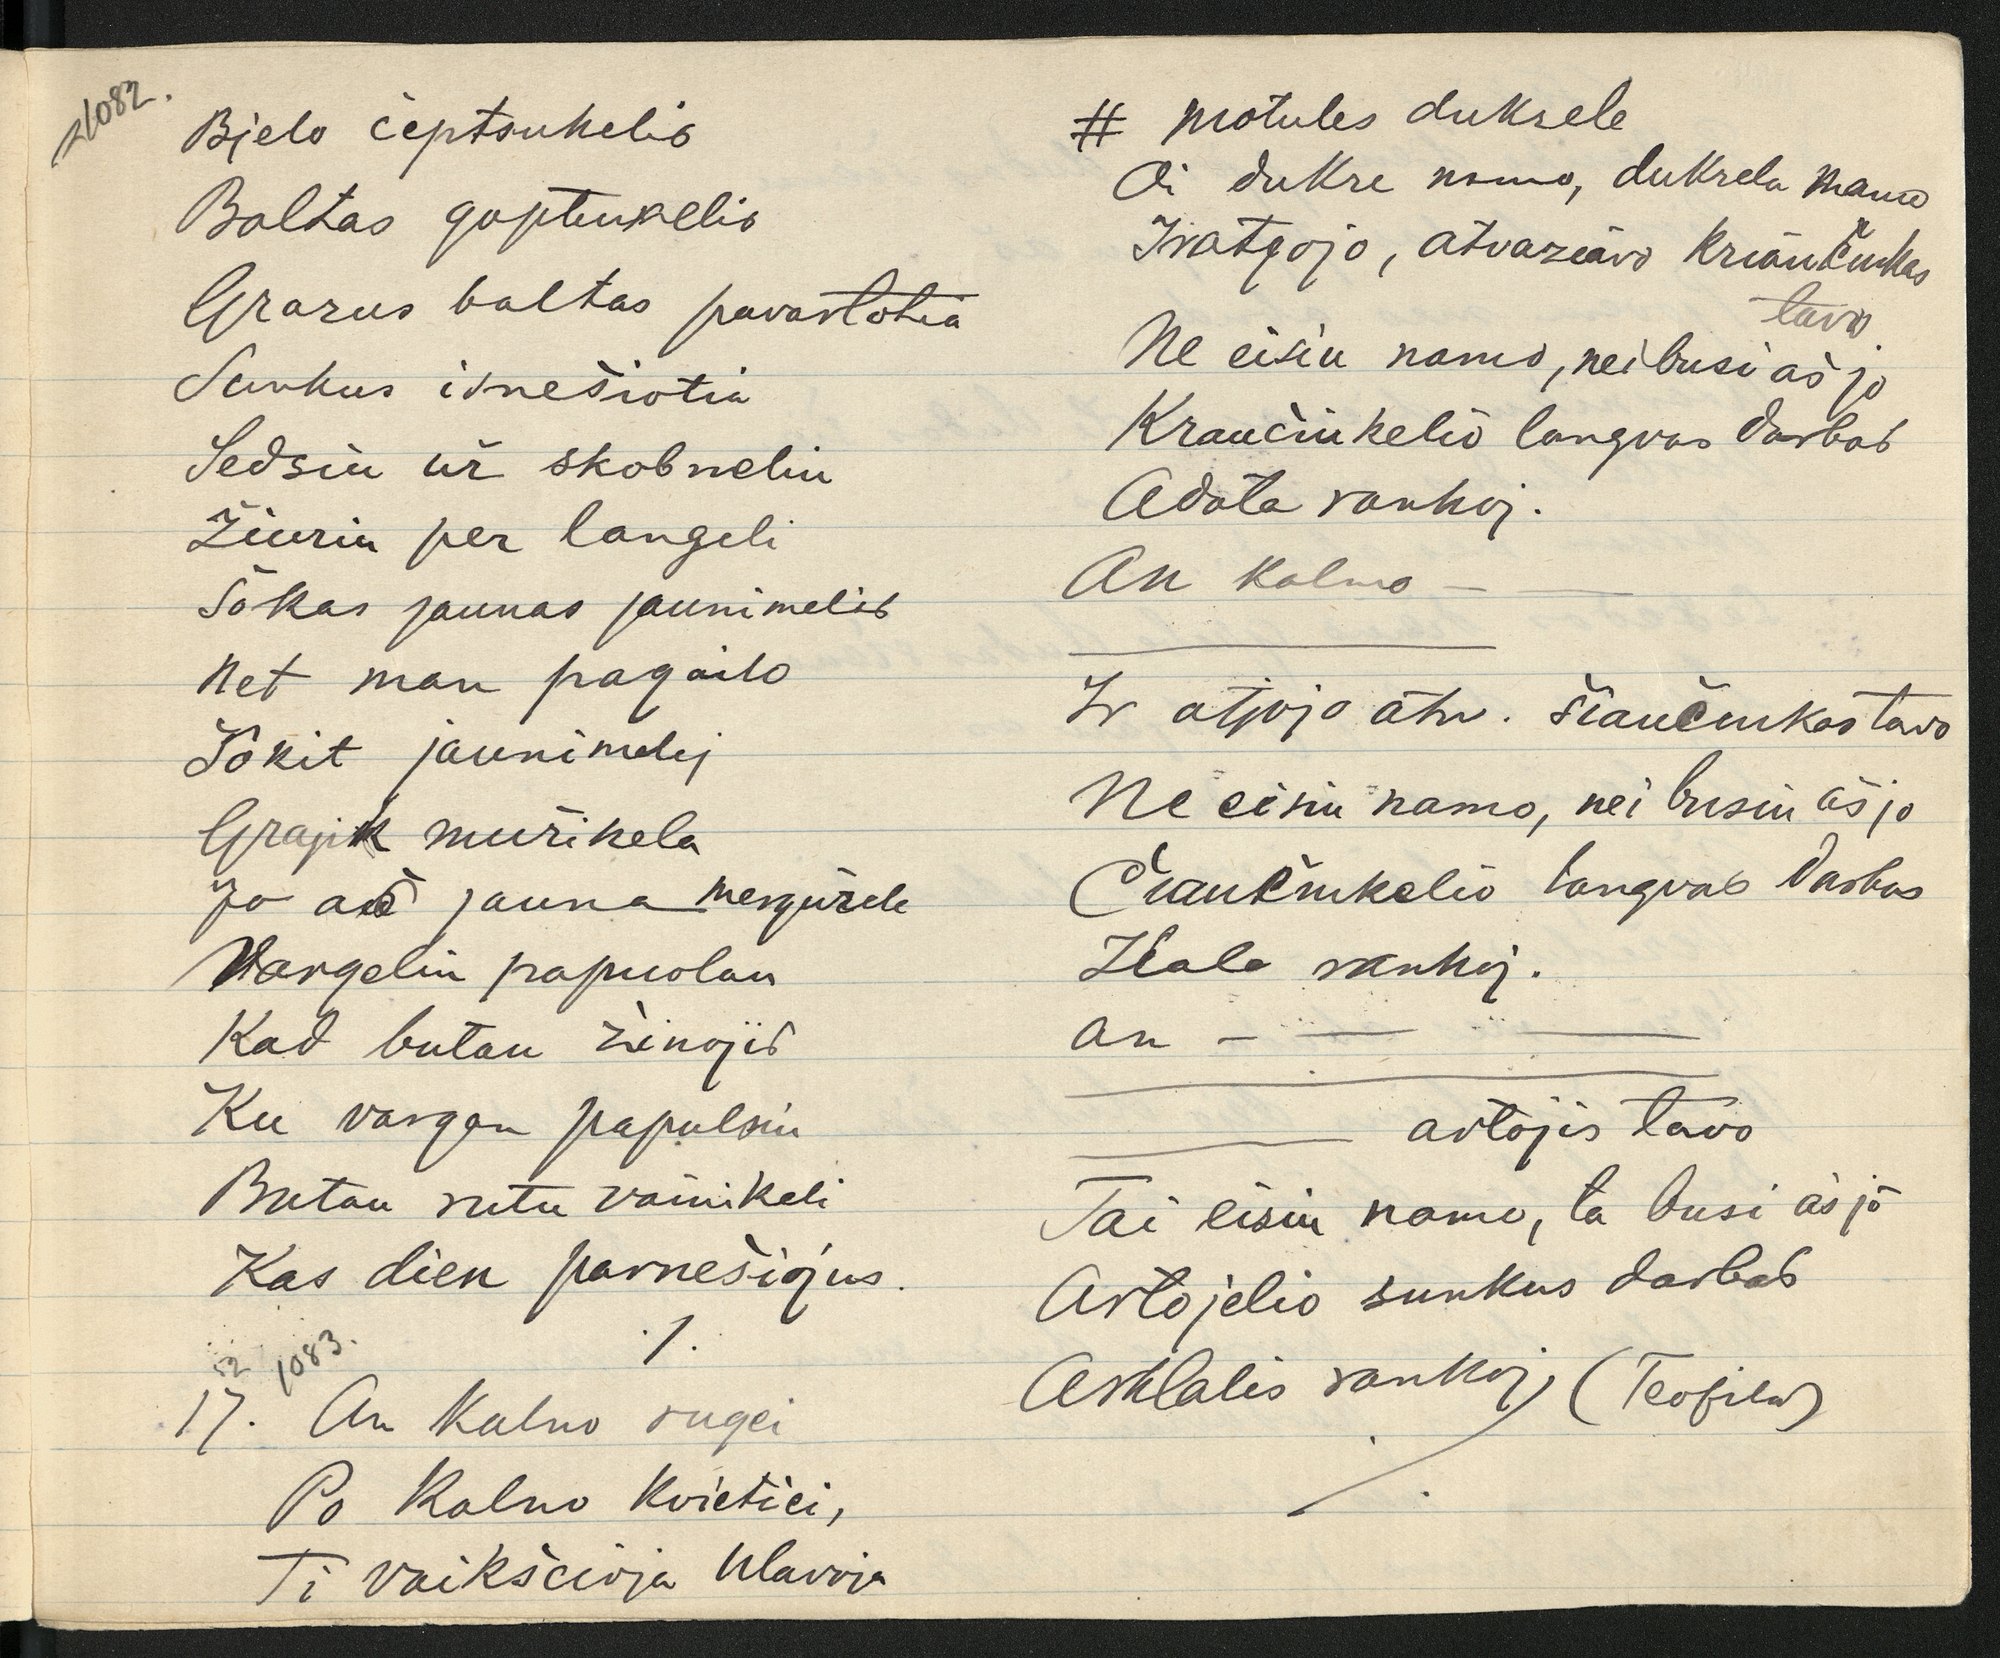 1082.
Bjelo čeptsukelis
Baltas gaptunkelis
Grazus baltas pavartotia
Sunkus isnešiotia
Sedsiu už skobneliu
Žiuriu per langeli
Šokas jaunas jaunimelis
Net man pagailo
Šokit jaunimelej
Grajik mužikela
Jo aš jauna mergužele
Vargelin papuolau
Kad butau žinojis
Ku vargan papulsiu
Butau rutu vainikeli
Kas dien parnešiojus.
1.
12 1083.
17. An kalno rugei
Po kalno kvietiei,
Ti vaikščioja Ulavoja
# motules duksele
Oi dukre namo, duksela mano
Iratgojo, atvaziavo kriaučiukas
tavo
Ne eisiu namo, nei busi aš jo
Kraučiukelio langvas darbas
Adata rankoj.
An kalno — —
Ir atjojo atv. šiaučiukas tavo
Ne eisiu namo, nei busiu aš jo
Čiaučiukelio langvas darbas
rankoj.
an — — —
artojis tavo
Tai eisiu namo, ta busi aš jo
Artojelio sunkus darbas
Arklalis rankoj (Teofile)